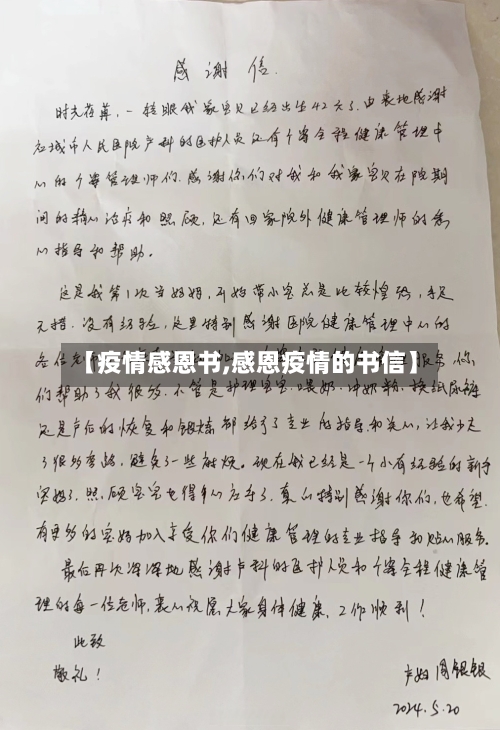 感谢信.
时光荏苒，一转眼我家宝贝已经出生42天了.由衷地感谢
应城市人民医院产科的医护人员还有个案全程健康管理中
心的个案管理师们.感谢你们对我和我家宝贝在院期
间的精心治疗和照顾，还有回家院外健康管理师的悉
心指导和帮助。
这是我第1次当妈妈，开始带小宝总是比较煌恐，手足
无措.没有经验，这里特别感谢医院健康管理中心的
各位
【疫情感恩书,感恩疫情的书信】
你
们帮助了我很多.不管是护理宝宝.喂奶.冲奶粉.换纸尿裤
还是产后的恢复和锻炼都给予了专业的指导和关心，让我少走
了很多弯路，避免了一些麻烦。现在我已经是一个小有经验的新手
宝妈了.照顾宝宝也得心应手了.真心特别感谢你们，也希望
有更多的宝妈加入享受你们健康管理的专业指导和贴心服务。
最后再次深深地感谢产科的医护人员和个案全程健康管
理的每一位老师，衷心祝愿大家身体健康，工作顺利！
此致
敬礼！
产妇周银银
2024.5.20